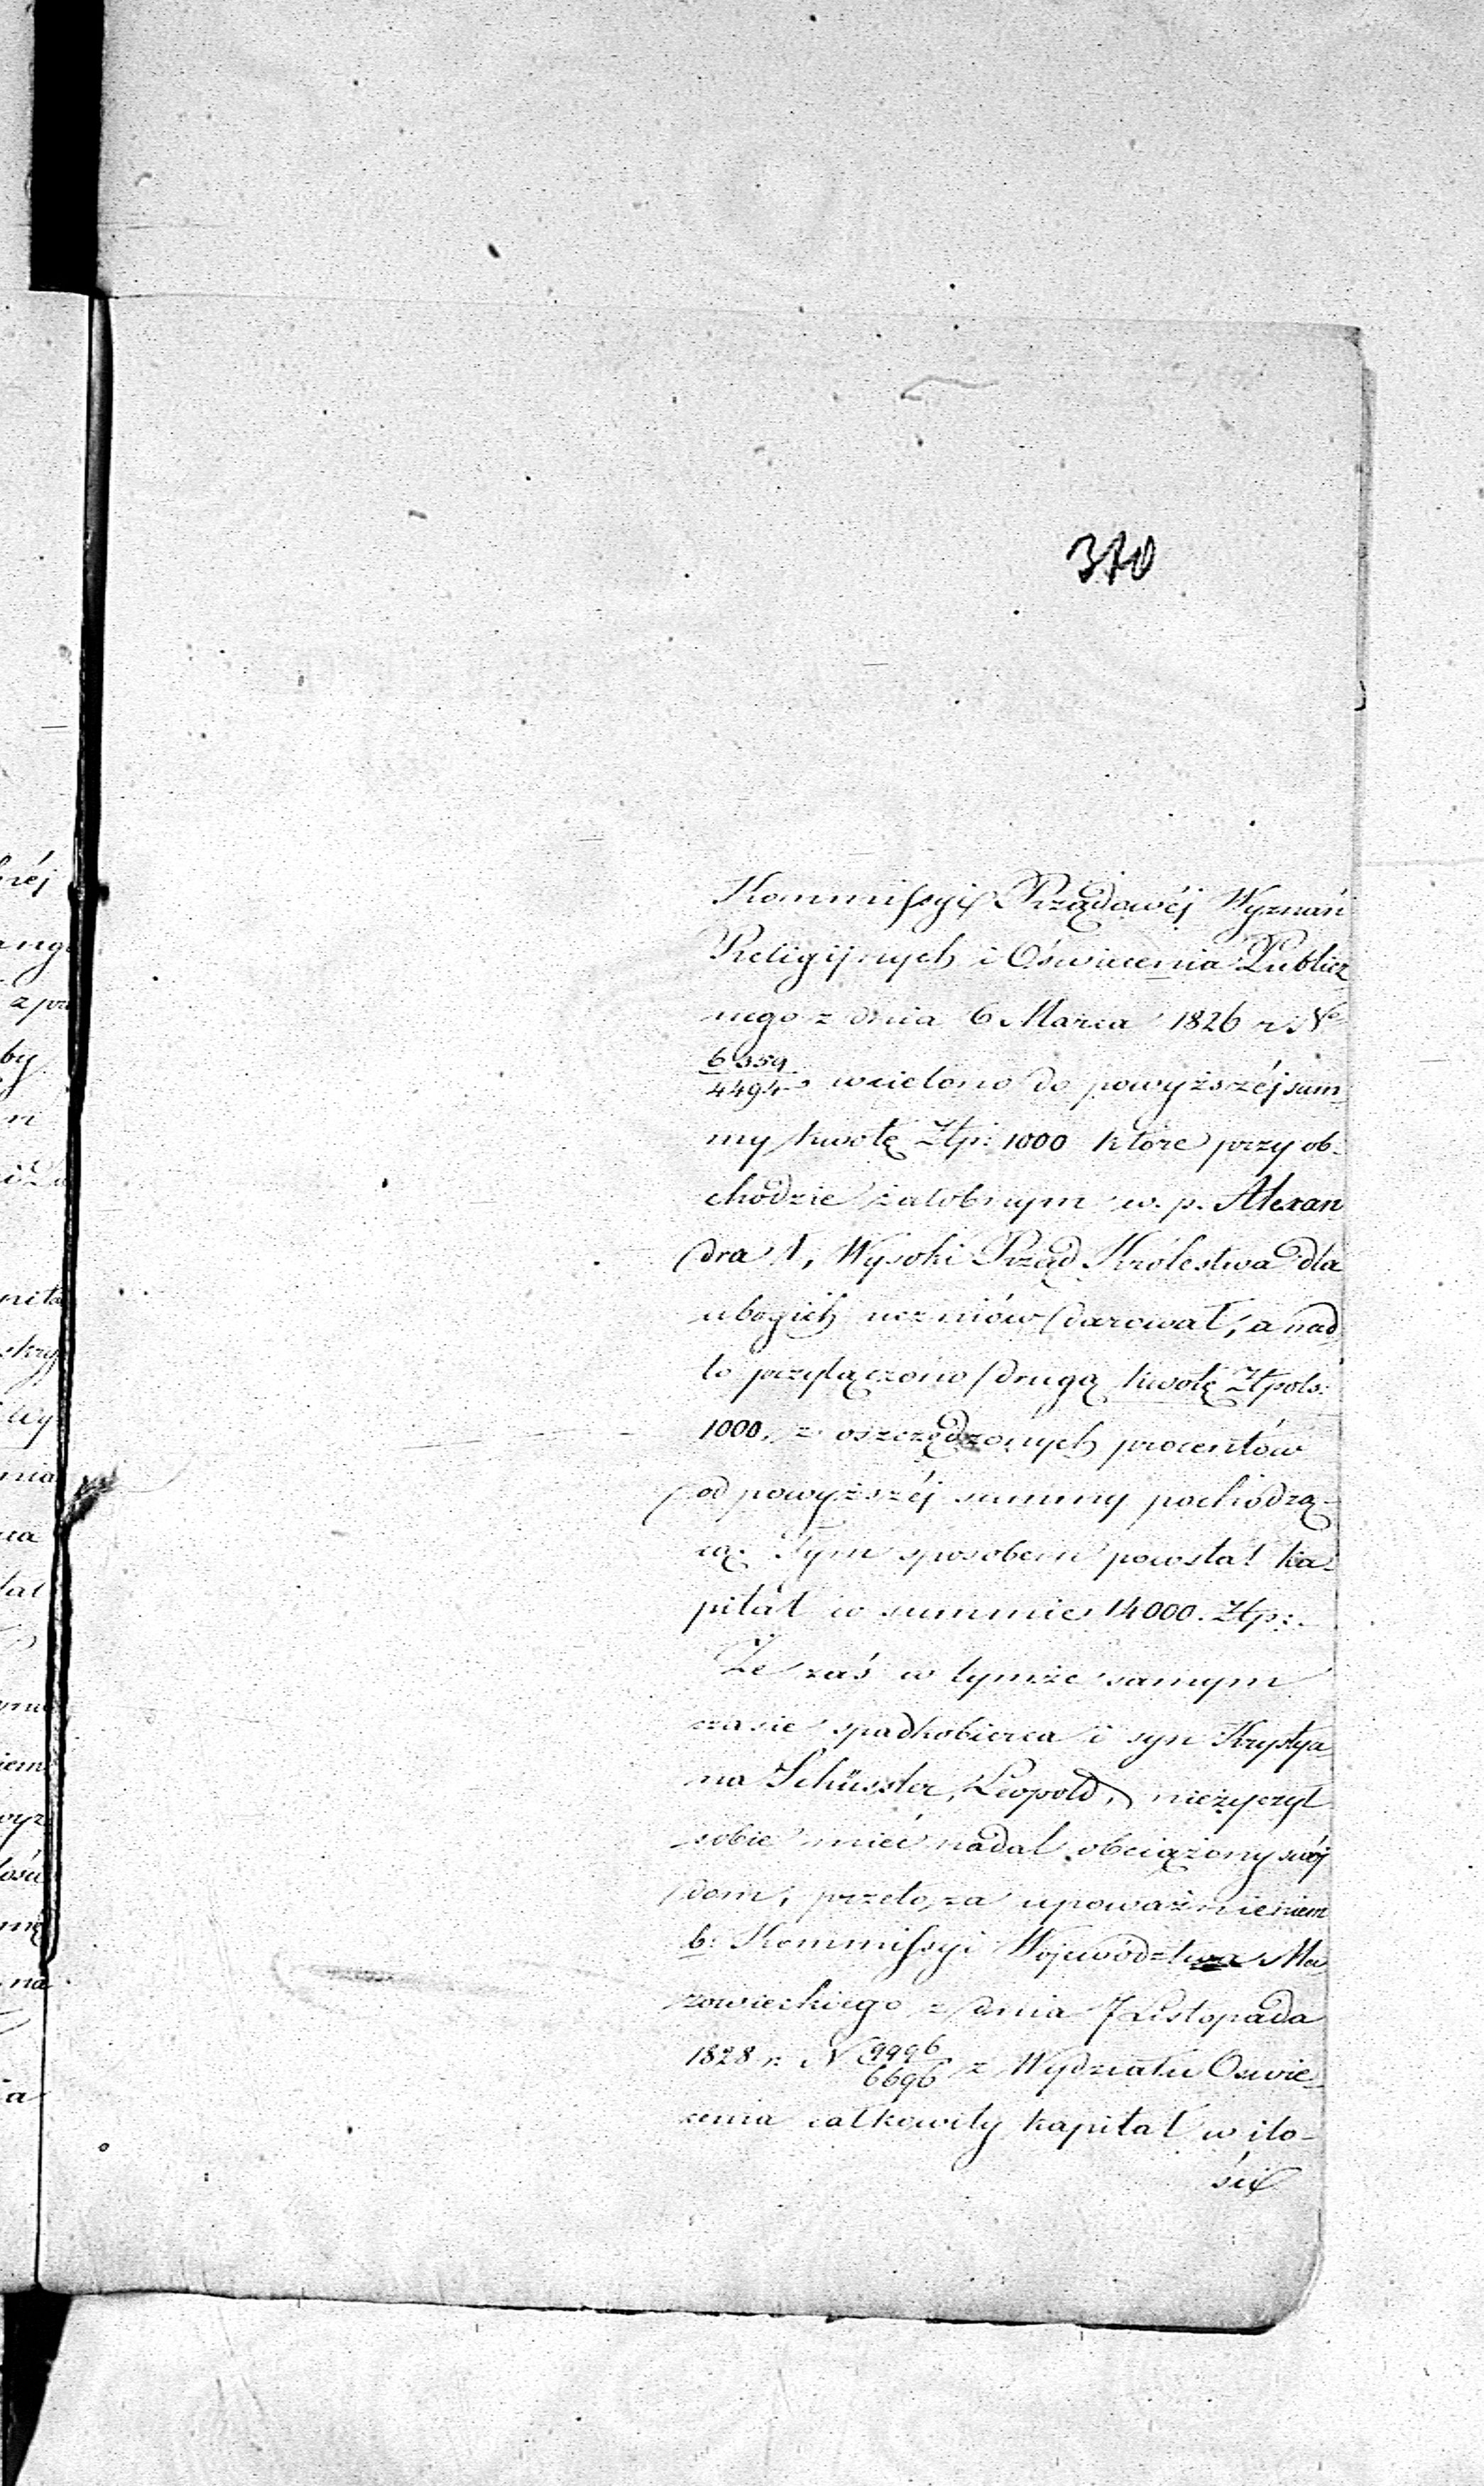 370
Kommissyi Rządowéj Wyznań
Religijnych i Oświecenia Publicz
nego z dnia 6 Marca 1826 r. No
6359/4494 wcielono do powyższéj sum
my kwotę Złp: 1000 które przy ob-
chodzie żałobnym w. p. Alexan
dra I, Wysoki Rząd Królestwa dla
ubogich uczniów darował, a nad
to przyłączono drugą kwotę Złpols:
1000, z oszczędzonych procentów
od powyższéj summy pochodzą-
cą. Tym sposobem powstał ka-
pitał w summie 14000. Złp:.
Że zaś w tymże samym
czasie spadkobierca i syn Krystya
na Schüssler, Leopold, nieżyczył
sobie mieć nadal obciążony swój
dom, przeto za upoważnieniem
b: Kommissyi Województwa Ma
zowieckiego z dnia 7 Listopada
1828 r. N 9996/6696 z Wydziału Oswie-
cenia całkowity kapitał w ilo-
ści